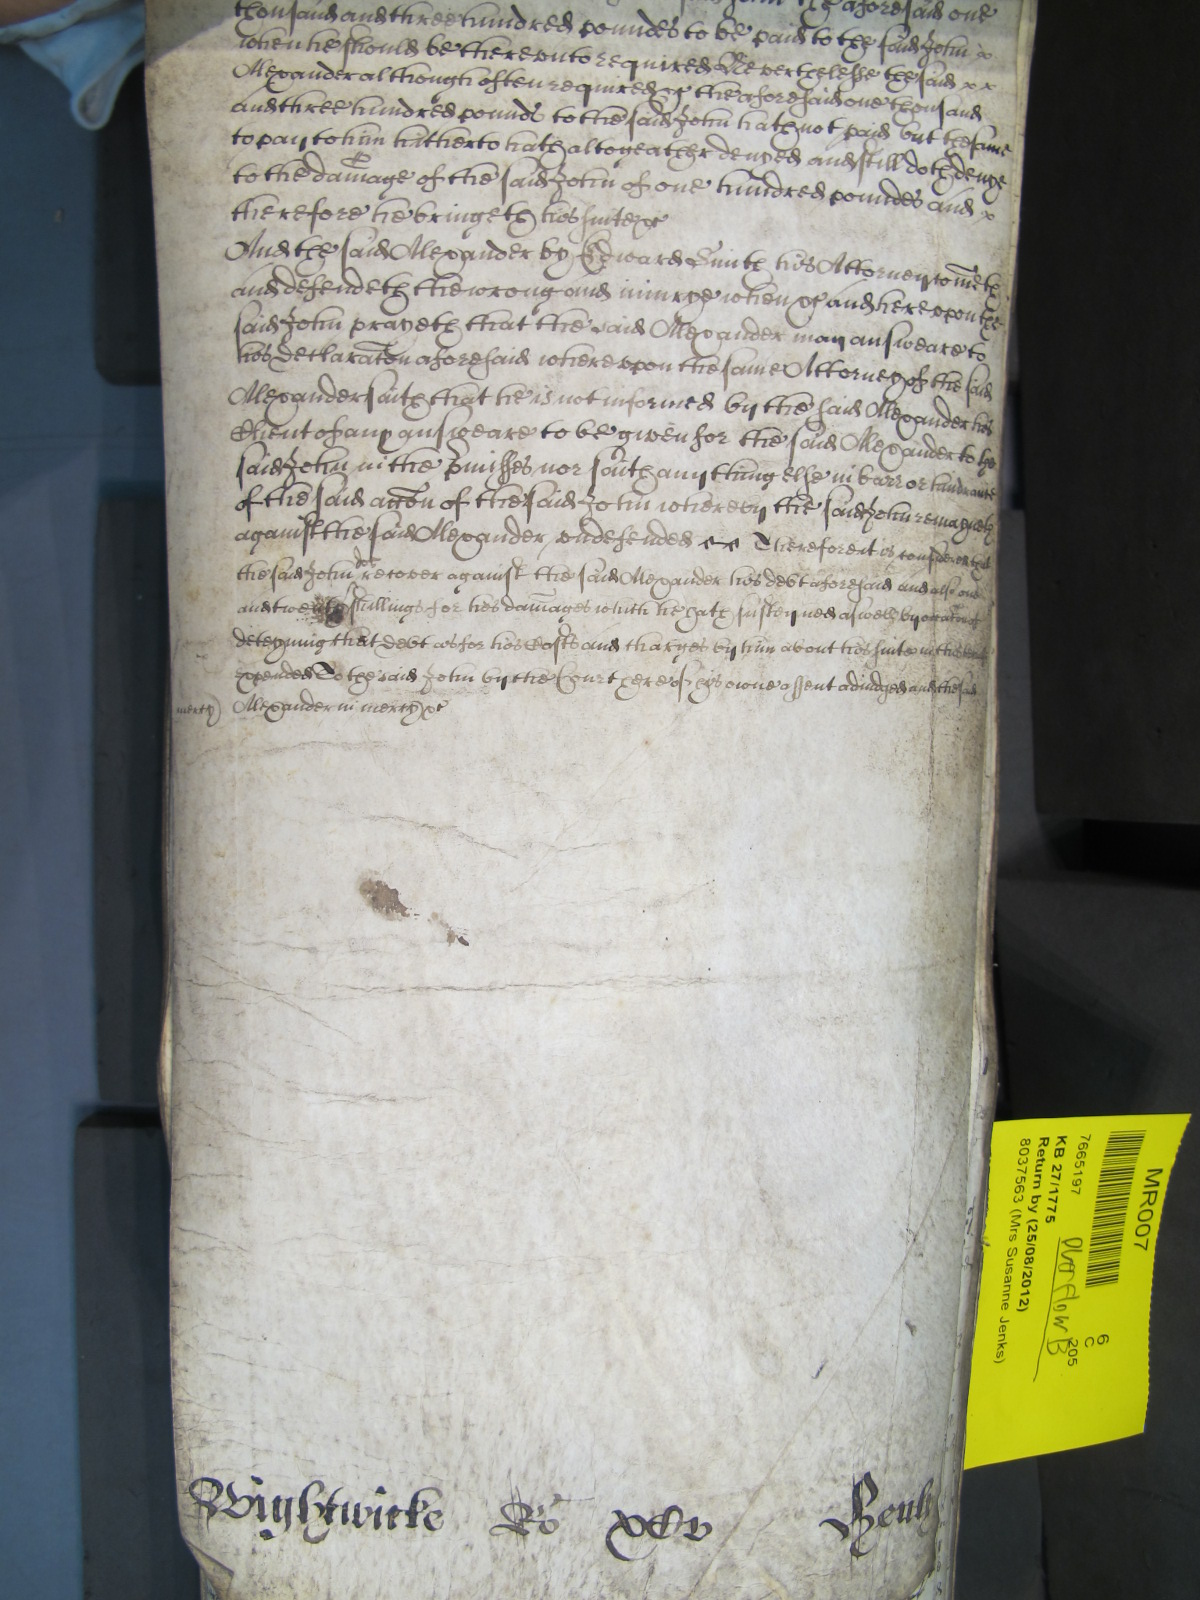 aforesaid one
thousand and three hundred poundes to be paid to the said John x
when he should be thereunto required Neverthelesse the said x x
Alexander although often required &c the aforesaid one thousand
and three hundred pounds to the said John hath not paid but the same
to pay to him hitherto hath altogeather denyed and still doth denye
to the damage of the said John of one hundred poundes and x
therefore he bringeth his suite &c
And the said Alexander by Edward Smith his Attorney cometh
and defendeth the wrong and iniurye when &c and hereupon the
said John prayeth that the said Alexander may answeare to
his declaracon aforesaid whereupon the same Attorney of the said
Alexander saith that he is not informed by the said Alexander his
Client of any answeare to be given for the said Alexander to the
said John in the pmisses nor saith any thing else in barr or hindrance
of the said accon of the said John whereby the said John remayneth
against the said Alexander undefended &c Therefore it is considered that
the said John do recover against the said Alexander his debt aforesaid and also one
and twenty shillings for his damages which he hath susteyned aswell by occacon of
deteyning that debt as for his Costs and charges by him about his suite in this behalf
expended To the said John by the Court here of his owne assent adiudged and the said
mercy) Alexander in mercy &c
Wightwicke Ro xcv Henly
MR007
7665197
KB 27/1775
Return by (25/08/2012)
8037563 (Mrs Susanne Jenks)
Overflow B
6
C
205